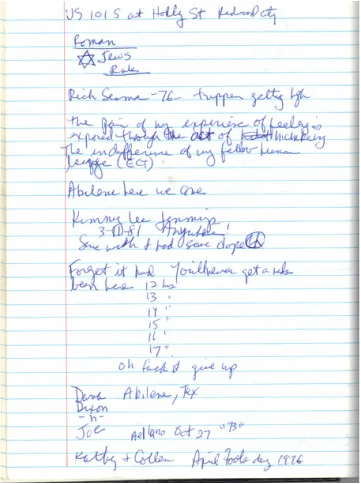 US 101 S at Holly St Redwood City
Roman
✡ Jews
Rule
Rich - 76 trippen getting high
the pain of my experience of feeling is
exposed through the act of hitchhiking
The indifference of my fellow human
(ECT)
Abilene here we are
Kimmy Lee Jennings
3-81 Anywhere!
Some had some dope ☮
Forget it You'll never get a ride
been here 12 hrs
13 "
14 "
15 "
16 "
17 "
Oh fuck it give up
Abilene, Tex
Dixon
-n-
Joe
Oct 27 "73"
Kathy + Colleen April Fools day 1976